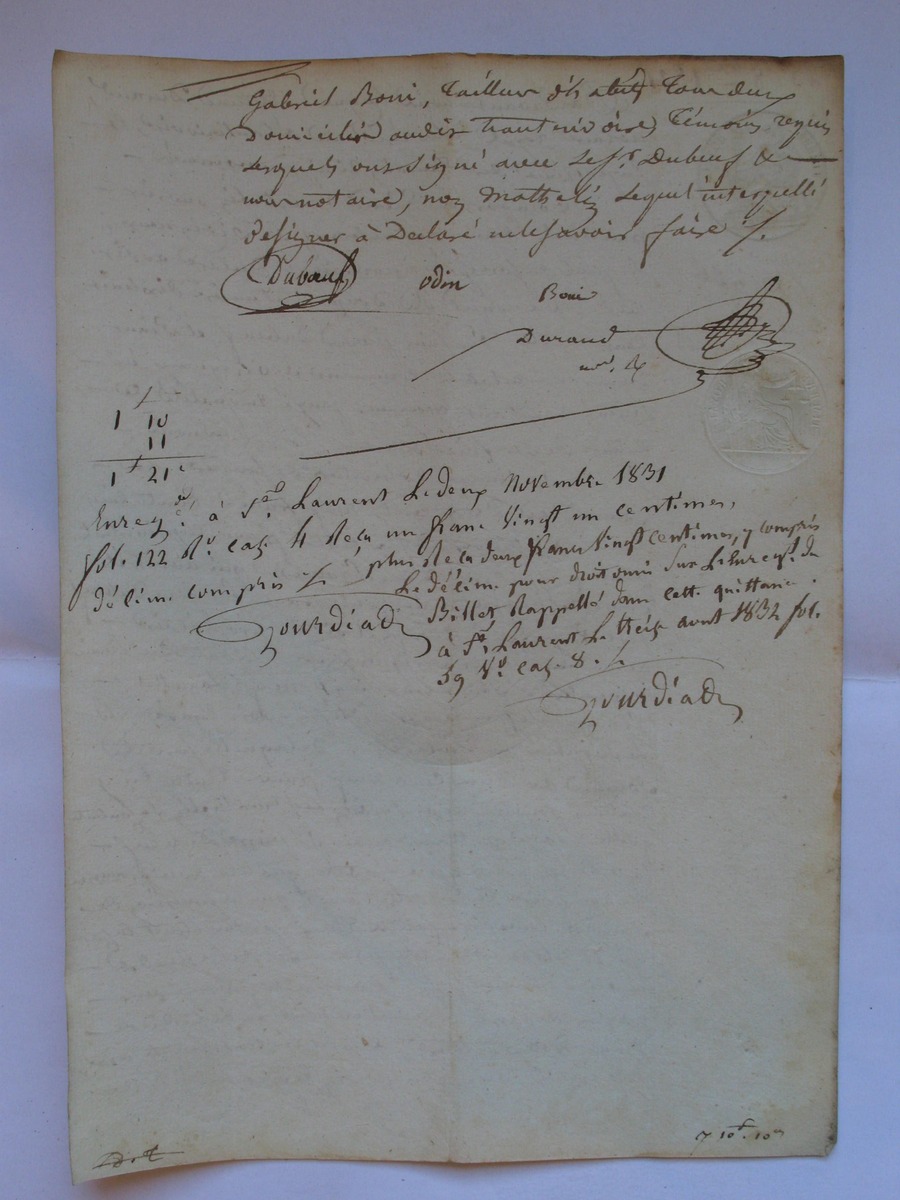 Gabriel Boni, tailleur d'habits tous deux
Domiciliés audit Trant témoins requis
Lesquels ont signé avec Le Sr. Duboeuf &
nous notaire, non Mathelin Lequel interpellé
de signer à Déclaré ne le savoir faire /.
Duboeuf odin Boni
Durand
nre. R
1 10
11
1f 21c
Enregdé. à St. Laurent Le deux Novembre 1831
fol. 122 Ro. cas. 4 Reçu un franc vingt un centimes,
décime compris /. plus Reçu deux francs vingt centimes, y compris
Le décime pour droit omis sur L'Enregt. du
Gourdiad Billet Rappellé dans cette quittance.
à St. Laurent Le treize avril 1832 fol.
59 Vo. cas. 8. /.
Gourdiad
7 10f. 10c